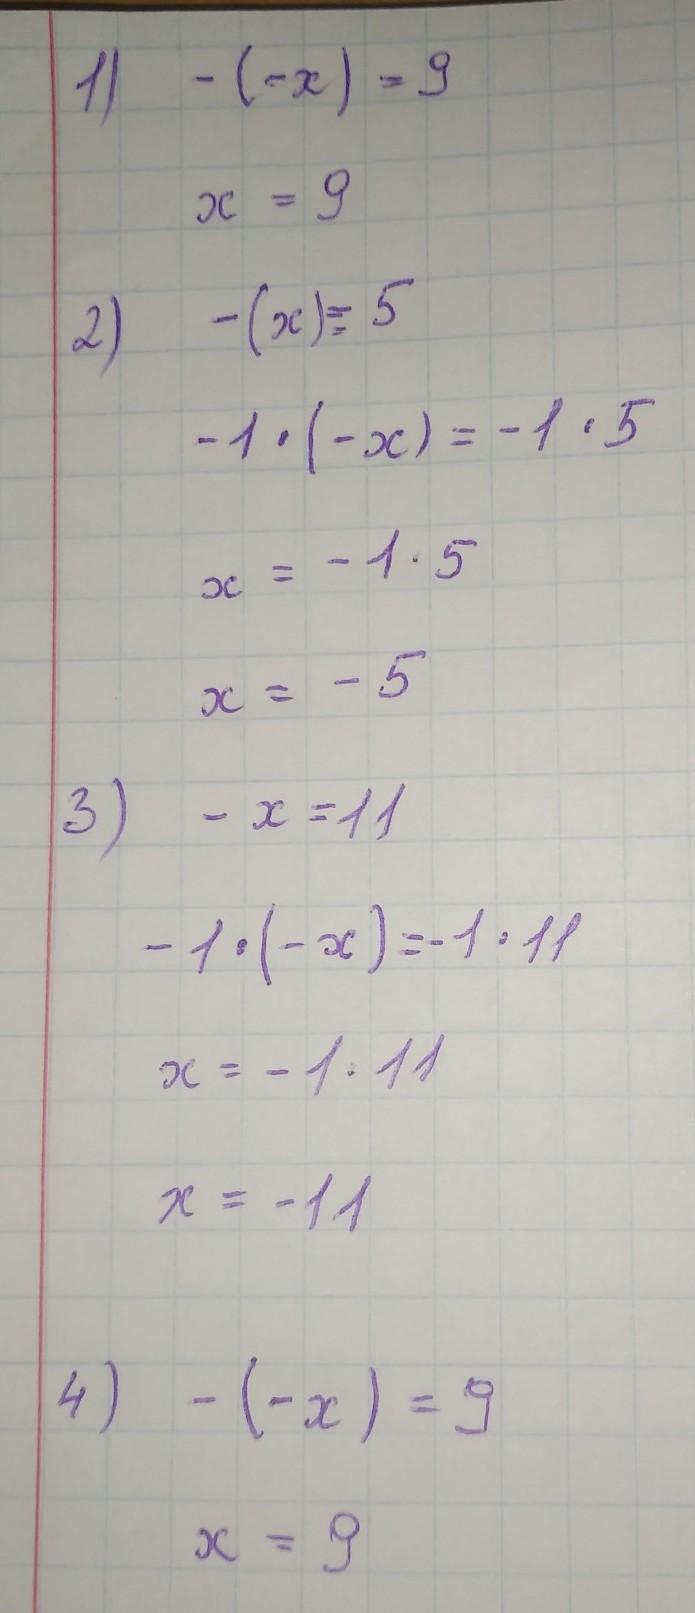 1) -(-x) = 9
x = 9
2) -(x) = 5
-1·(-x) = -1·5
x = -1·5
x = -5
3) -x = 11
-1·(-x) = -1·11
x = -1·11
x = -11
4) -(-x) = 9
x = 9